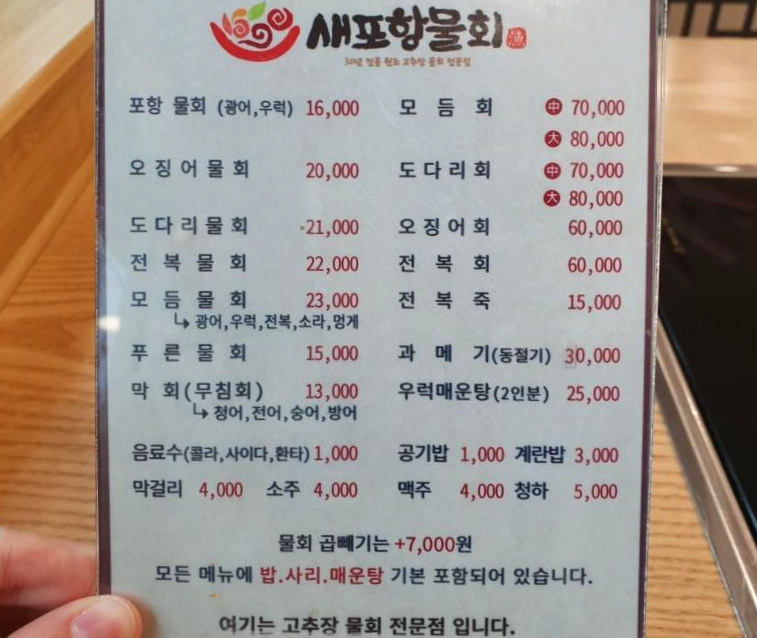 새포항물회
30년 정통 원조 고추장 물회 전문점
포항 물회 (광어,우럭) 16,000
오징어물회 20,000
도다리물회 21,000
전복물회 22,000
모듬물회 23,000
↳ 광어,우럭,전복,소라,멍게
푸른물회 15,000
막 회(무침회) 13,000
↳ 청어,전어,숭어,방어
모듬회 中 70,000
大 80,000
도다리회 中 70,000
大 80,000
오징어회 60,000
전복회 60,000
전복죽 15,000
과메기(동절기) 30,000
우럭매운탕(2인분) 25,000
음료수(콜라,사이다,환타) 1,000
공기밥 1,000 계란밥 3,000
막걸리 4,000 소주 4,000
맥주 4,000 청하 5,000
물회 곱빼기는 +7,000원
모든 메뉴에 밥.사리.매운탕 기본 포함되어 있습니다.
여기는 고추장 물회 전문점 입니다.